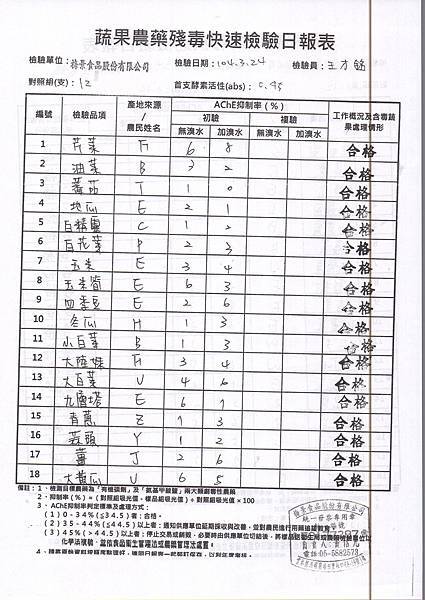 蔬果農藥殘毒快速檢驗日報表
檢驗單位：捲景食品股份有限公司 檢驗日期：104.3.24 檢驗員：王才
對照組(支)：12 首支酵素活性(abs)：0.95
編號 檢驗品項 產地來源/農民姓名 AChE抑制率(%) 工作概況及含毒蔬果處理情形
初驗 複驗
無溴水 加溴水 無溴水 加溴水
1 芹菜 6 8 合格
2 油菜 B 3 2 合格
3 蕃茄 T 1 0 合格
4 地瓜 E 2 1 合格
5 白精靈 C 1 2 合格
6 白花菜 P 2 3 合格
7 玉米 E 3 4 合格
8 玉米筍 E 6 3 合格
9 四季豆 E 2 6 合格
10 冬瓜 H 1 3 合格
11 小白菜 B 1 3 合格
12 大陸妹 3 4 合格
13 大白菜 U 4 6 合格
14 九層塔 E 6 1 合格
15 青蔥 Z 1 3 合格
16 蒜頭 Y 1 2 合格
17 薑 J 2 6 合格
18 大黃瓜 U 6 5 合格
備註：1、檢測目標農藥為「有機磷劑」及「氨基甲酸鹽」兩大類劇毒性農藥
2、抑制率(%)=(對照組吸光值-樣品組吸光值)÷對照組吸光值×100
3、AChE抑制率判定標準及處理方式：
(1)0-34%(≦34.5)者：合格。
(2)35-44%(≦44.5)以上者：通知供應單位延期採收與改善，並對農民進行用藥追蹤教育
(3)45%(>44.5)以上者：停止交易或銷毀，必要時由供應單位切結後，將樣品送衛生局或農藥檢驗單位以
化學法複驗，當依食品衛生管理法或農藥管理法處置。
股份有限公司
統一發票專用章
電話:05-5882573